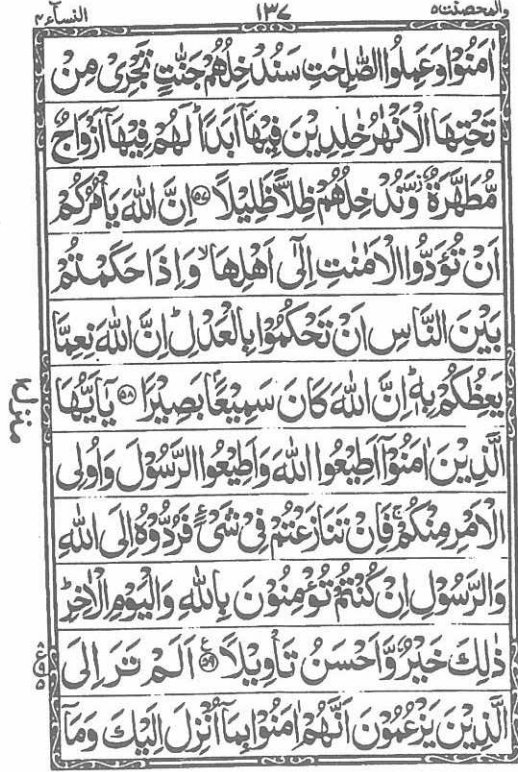 والمحصنت۵ ۱۳۷ النسآء۴
اٰمَنُوْا وَعَمِلُوا الصّٰلِحٰتِ سَنُدْخِلُهُمْ جَنّٰتٍ تَجْرِیْ مِنْ
تَحْتِهَا الْاَنْهٰرُ خٰلِدِیْنَ فِیْهَاۤ اَبَدًا ؕ لَهُمْ فِیْهَاۤ اَزْوَاجٌ
مُّطَهَّرَةٌ ؗ وَّنُدْخِلُهُمْ ظِلًّا ظَلِیْلًا ۵۷ اِنَّ اللّٰهَ یَاْمُرُكُمْ
اَنْ تُؤَدُّوا الْاَمٰنٰتِ اِلٰۤی اَهْلِهَا ۙ وَاِذَا حَكَمْتُمْ
بَیْنَ النَّاسِ اَنْ تَحْكُمُوْا بِالْعَدْلِ ؕ اِنَّ اللّٰهَ نِعِمَّا
یَعِظُكُمْ بِهٖ ؕ اِنَّ اللّٰهَ كَانَ سَمِیْعًۢا بَصِیْرًا ۵۸ یٰۤاَیُّهَا
الَّذِیْنَ اٰمَنُوْۤا اَطِیْعُوا اللّٰهَ وَاَطِیْعُوا الرَّسُوْلَ وَاُولِی
الْاَمْرِ مِنْكُمْ ۚ فَاِنْ تَنَازَعْتُمْ فِیْ شَیْءٍ فَرُدُّوْهُ اِلَی اللّٰهِ
وَالرَّسُوْلِ اِنْ كُنْتُمْ تُؤْمِنُوْنَ بِاللّٰهِ وَالْیَوْمِ الْاٰخِرِ ؕ
ذٰلِكَ خَیْرٌ وَّاَحْسَنُ تَاْوِیْلًا ۵۹ ع اَلَمْ تَرَ اِلَی
الَّذِیْنَ یَزْعُمُوْنَ اَنَّهُمْ اٰمَنُوْا بِمَاۤ اُنْزِلَ اِلَیْكَ وَمَاۤ
منزل